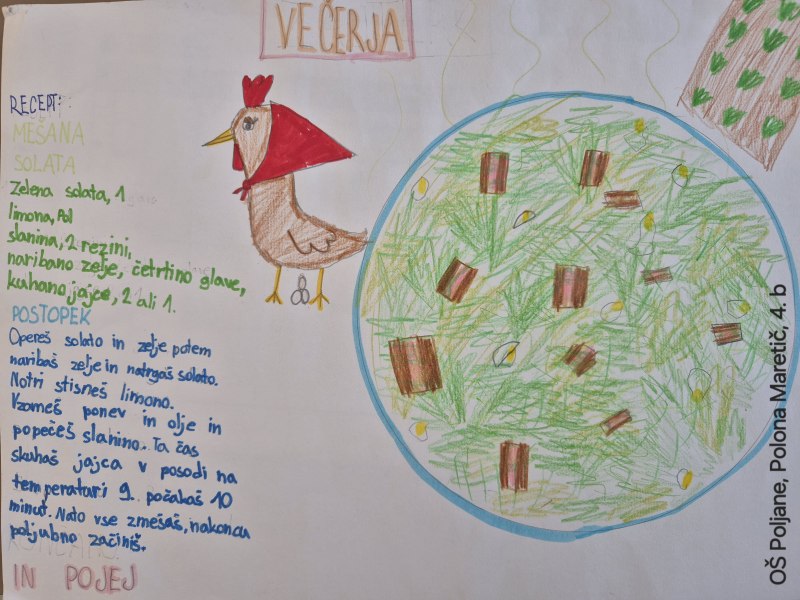 VEČERJA
RECEPT:
MEŠANA
SOLATA
Zelena solata, 1
limona, pol
slanina, 2 rezini,
naribano zelje, četrtino glave,
kuhano jajce, 2 ali 1.
POSTOPEK
Opereš solato in zelje potem
naribaš zelje in natrgaš solato.
Notri stisneš limono.
Vzameš ponev in olje in
popečeš slanino. Ta čas
skuhaš jajca v posodi na
temperaturi 9. počakaš 10
minut. Nato vse zmešaš, nakoncu
poljubno začiniš.
IN POJEJ
OŠ Poljane, Polona Maretič, 4. b